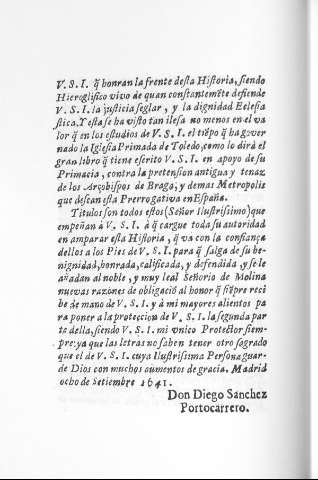 V. S. I. q̃ honran la frente desta Historia, siendo
Hieroglifico vivo de quan constantemẽte defiende
V. S. I. la justicia seglar, y la dignidad Eclesia
stica. Y esta se ha visto tan ilesa no menos en el va
lor q̃ en los estudios de V. S. I. el tiẽpo q̃ ha gover
nado la Iglesia Primada de Toledo, como lo dirà el
gran libro q̃ tiene escrito V. S. I. en apoyo de su
Primacia, contra la pretension antigua y tenaz
de los Arçobispos de Braga, y demas Metropolis
que desean esta Prerrogativa en España.
Titulos son todos estos (Señor Ilustrissimo) que
empeñan à V. S. I. à q̃ cargue toda su autoridad
en amparar esta Historia, q̃ va con la confiança
dellos a los Pies de V. S. I. para q̃ salga de su be-
nignidad, honrada, calificada, y defendida, y se le
añadan al noble, y muy leal Señorio de Molina
nuevas razones de obligaciõ al honor q̃ siẽpre reci
be de mano de V. S. I. y à mi mayores alientos pa
ra poner a la proteccion de V. S. I. la segunda par
te della, siendo V. S. I. mi vnico Protector siem-
pre: ya que las letras no saben tener otro sagrado
que el de V. S. I. cuya Ilustrissima Persona guar-
de Dios con muchos aumentos de gracia. Madrid
ocho de Setiembre 1641.
Don Diego Sanchez
Portocarrero.